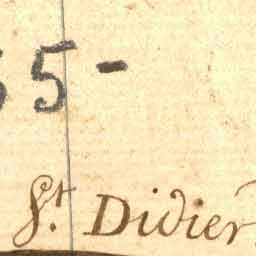 55-
St. Didier